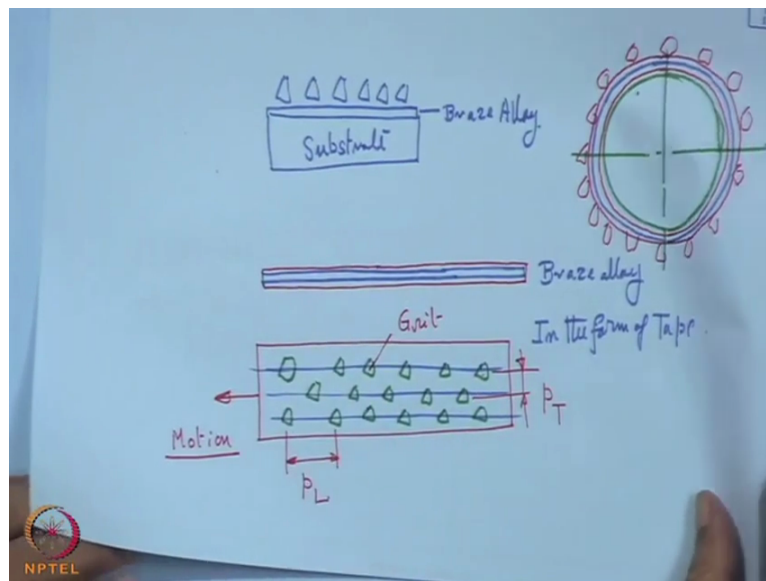 Braze Alloy
Substrate
Braze alloy
In the form of Tape.
Grit
PT
Motion
PL
NPTEL